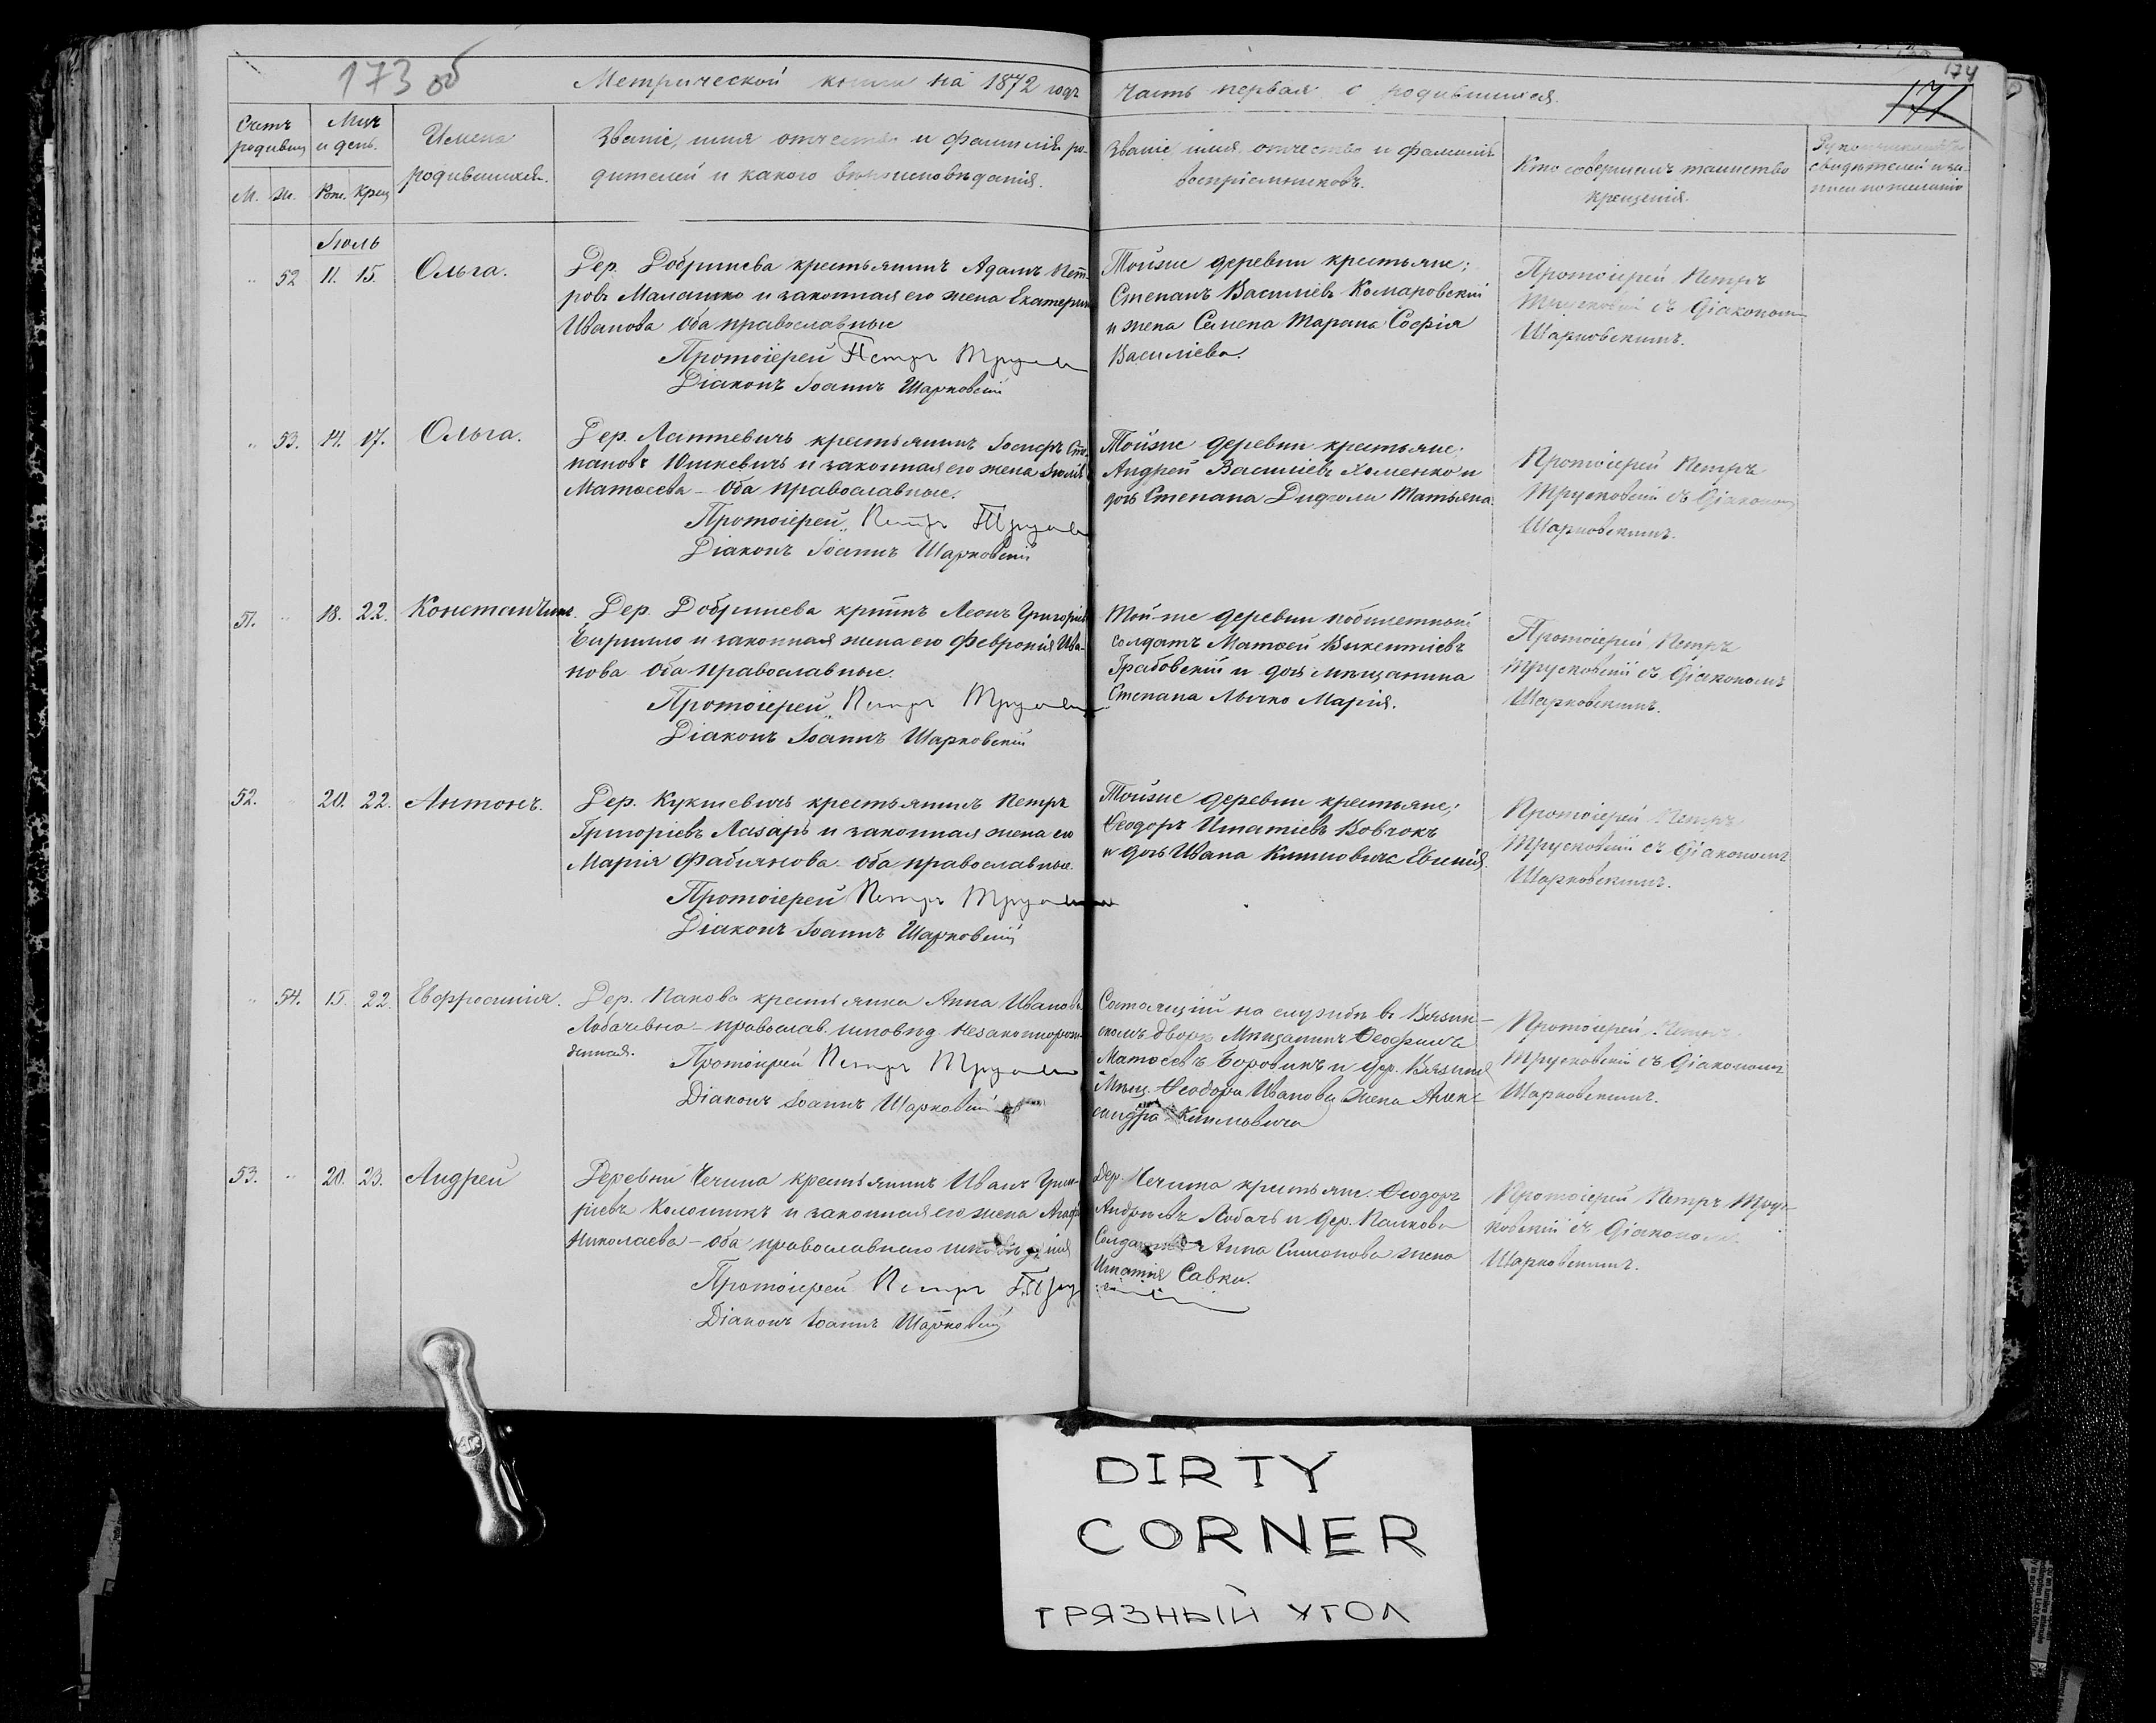 173 об
174
171
Метрической книги на 1872 годъ часть первая о родившихся.
Счетъ родивш.
М. Ж.
Мцъ и день.
Рож. Крещ.
Имена родившихся.
Званіе, имя отчество и фамилія ро-
дителей и какого вѣроисповѣданія.
Званіе, имя, отчество и фамилія
воспріемниковъ.
Кто совершалъ таинство
крещенія.
свидѣтелей
Іюль
52 11. 15. Ольга.
Дер. Добринева крестьянинъ Адамъ Пет-
ровъ Малашко и законная его жена Екатерина
Иванова оба православные
Протоіерей Петръ
Діаконъ Іоаннъ Шарковскій
Тойже деревни крестьяне;
Степанъ Василіевъ Комаровскій
и жена Семена Тарана Софія
Василіева.
Протоіерей Петръ
Трусковскій съ Діакономъ
Шарковскимъ.
53. 14. 17. Ольга.
Дер. Лаптевичъ крестьянинъ Іосифъ Сте-
пановъ Юшкевичъ и законная его жена
Матѳеева – оба православные.
Протоіерей Петръ
Діаконъ Іоаннъ Шарковскій
Тойже деревни крестьяне.
Андрей Василіевъ Хоменко и
дочь Степана Татьяна.
Протоіерей Петръ
Трусковскій съ Діакономъ
Шарковскимъ.
51. 18. 22. Константинъ.
Дер. Добринева крстнъ Леонъ Григоріевъ
и законная жена его Февронія Ива-
нова оба православные.
Протоіерей Петръ
Діаконъ Іоаннъ Шарковскій
Той-же деревни
солдатъ Матѳей Викентіевъ
Грабовскій и дочь мѣщанина
Степана Лычко Марія.
Протоіерей Петръ
Трусковскій съ Діакономъ
Шарковскимъ.
52. 20. 22. Антонъ.
Дер. Кукшевичъ крестьянинъ Петръ
Григоріевъ Лазарь и законная жена его
Марія Фабіянова оба православные.
Протоіерей Петръ
Діаконъ Іоаннъ Шарковскій
Тойже деревни крестьяне;
Ѳеодоръ Игнатіевъ Вовчокъ
и дочь Ивана Евгенія.
Протоіерей Петръ
Трусковскій съ Діакономъ
Шарковскимъ.
54. 15. 22. Евфросинія.
Дер. Панова крестьянка Анна Иванова
Лобачевна – православ. исповѣд. Незаконнорож-
денная.
Протоіерей Петръ
Діаконъ Іоаннъ Шарковскій
Состоящій на службѣ въ
скомъ дворѣ Мѣщанинъ Ѳеофилъ
Матѳеевъ Боровикъ и дер.
Мѣщ. Ѳеодора Иванова жена Алек-
сандра
Протоіерей Петръ
Трусковскій съ Діакономъ
Шарковскимъ.
53. 20. 23. Андрей
Деревни Чечина крестьянинъ Иванъ Григо-
ріевъ и законная его жена
Николаева – оба православнаго исповѣданія
Протоіерей Петръ
Діаконъ Іоаннъ Шарковскій
Дер. Чечина крестьяне Ѳеодоръ
Андреевъ Лобачъ и дер.
Анна Симонова жена
Игнатія Савки.
Протоіерей Петръ Трус-
ковскій съ Діакономъ
Шарковскимъ.
DIRTY
CORNER
ГРЯЗНЫЙ УГОЛ